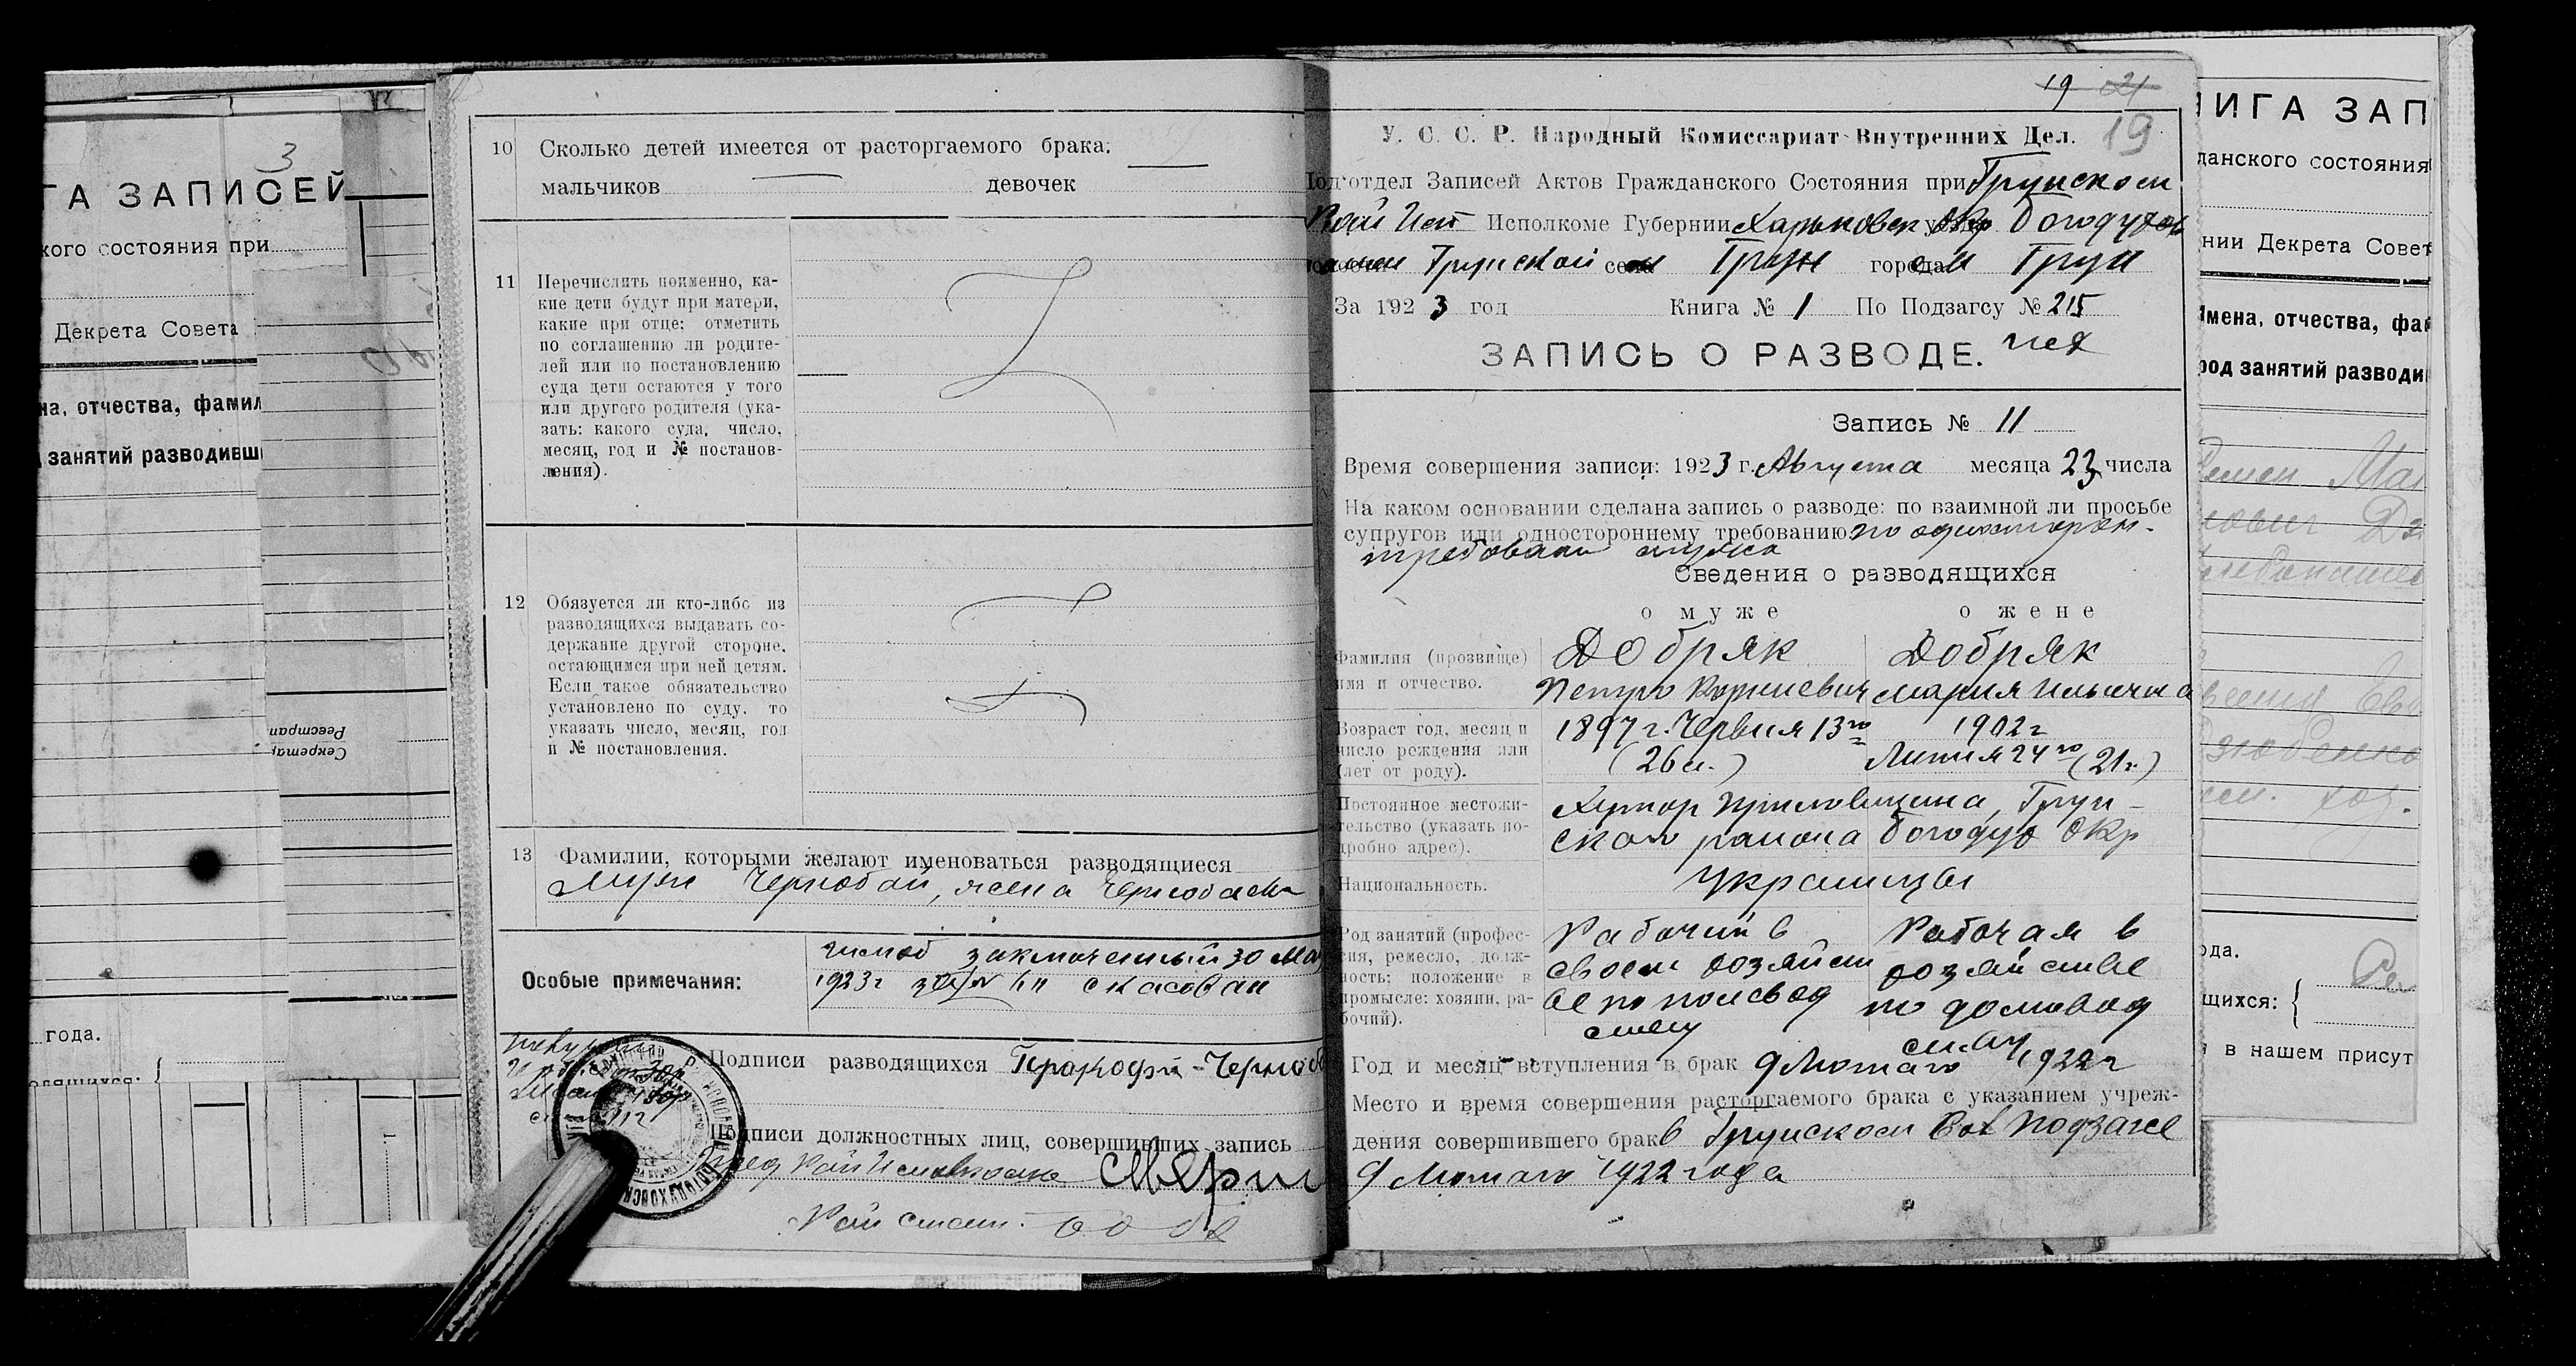 3
ГА ЗАПИСЕЙ
кого состояния при
Декрета Совета
на, отчества, фамил
занятий разводивши
Реестрац
Секретар
года.
10 Сколько детей имеется от расторгаемого брака:
мальчиков — девочек —
11 Перечислить поименно, ка-
кие дети будут при матери,
какие при отце; отметить
по соглашению ли родите-
лей или по постановлению
суда дети остаются у того
или другого родителя (ука-
зать: какого суда, число,
месяц, год и № постанов-
ления).
12 Обязуется ли кто-либо из
разводящихся выдавать со-
держание другой стороне,
остающимся при ней детям.
Если такое обязательство
установлено по суду, то
указать число, месяц, год
и № постановления.
13 Фамилии, которыми желают именоваться разводящиеся
муж Чернобай, жена
Особые примечания:
заключенный 30
1923г скасован
Подписи разводящихся Прокофи - Черноб
Подписи должностных лиц, совершивших запись
19 21
19
У. С. С. Р. Народный Комиссариат Внутренних Дел.
Под'отдел Записей Актов Гражданского Состояния при Грунском
Рай Исп Исполкоме Губернии Харьковск Окр Богодухов
Грунской села Грун города Грун
За 1923 год Книга № 1 По Подзагсу № 215
ЗАПИСЬ О РАЗВОДЕ.
Запись № 11
Время совершения записи: 1923 г. Августа месяца 23 числа
На каком основании сделана запись о разводе: по взаимной ли просьбе
супругов или одностороннему требованию по одностoрон-
требовани мужа
Сведения о разводящихся
о муже о жене
Фамилия (прозвище) Добряк Добряк
имя и отчество. Петро Корниевич Мария Ильична
Возраст год, месяц и 1897 г. Червня 13го 1902г
число рождения или (26 л.) Липня 24го (21г.)
(лет от роду).
Постоянное местожи- Хутор Грун-
тельство (указать по- скаго района Богодух Окр
дробно адрес).
Национальность. Украинцы
Род занятий (профес- Рабочий в Рабочая в
сия, ремесло, долж- своем хозяйст хозяйстве
ность; положение в ве по полевод по домовод
промысле: хозяин, ра- ству ству
бочий).
Год и месяц вступления в брак 9 Лютаго 1922г
Место и время совершения расторгаемого брака с указанием учреж-
дения совершившего брак в Грунском Вол Подзагсе
9 Лютаго 1922 года
НИГА ЗАП
данского состояния
нии Декрета Совет
Имена, отчества, фам
род занятий разводи
ода.
щихся: {
в нашем присут